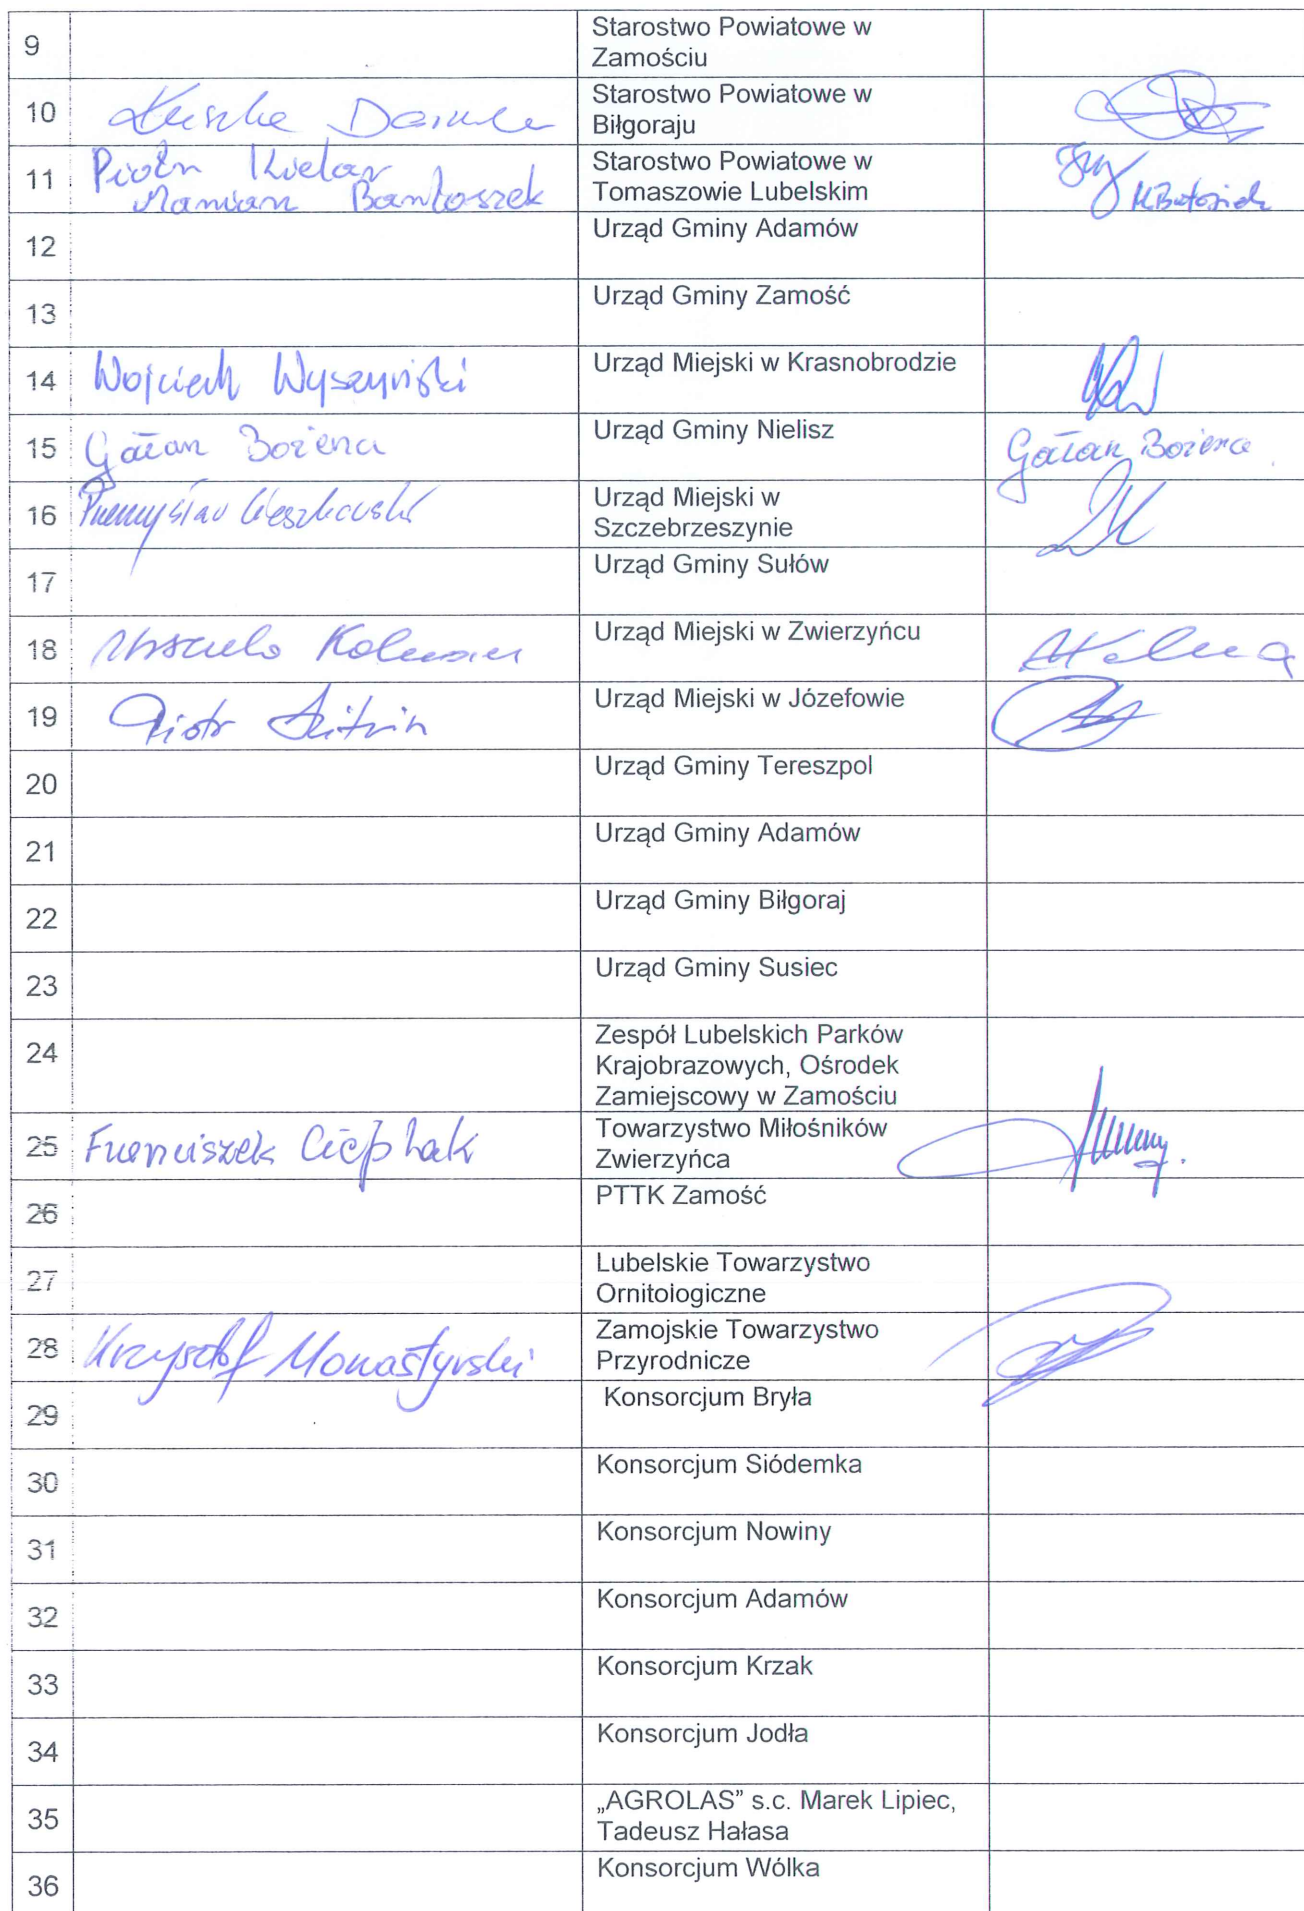 9 Starostwo Powiatowe w
Zamościu
10 Starostwo Powiatowe w
Biłgoraju
11 Piotr Kielar Starostwo Powiatowe w
Marian Bartoszek Tomaszowie Lubelskim MBartoszek
12 Urząd Gminy Adamów
13 Urząd Gminy Zamość
14 Wojciech Wyszyński Urząd Miejski w Krasnobrodzie
15 Gałan Bożena Urząd Gminy Nielisz Gałan Bożena
16 Przemysław Urząd Miejski w
Szczebrzeszynie
17 Urząd Gminy Sułów
18 Urszula Urząd Miejski w Zwierzyńcu
19 Piotr Urząd Miejski w Józefowie
20 Urząd Gminy Tereszpol
21 Urząd Gminy Adamów
22 Urząd Gminy Biłgoraj
23 Urząd Gminy Susiec
24 Zespół Lubelskich Parków
Krajobrazowych, Ośrodek
Zamiejscowy w Zamościu
25 Franciszek Towarzystwo Miłośników
Zwierzyńca
26 PTTK Zamość
27 Lubelskie Towarzystwo
Ornitologiczne
28 Krzysztof Monastyrski Zamojskie Towarzystwo
Przyrodnicze
29 Konsorcjum Bryła
30 Konsorcjum Siódemka
31 Konsorcjum Nowiny
32 Konsorcjum Adamów
33 Konsorcjum Krzak
34 Konsorcjum Jodła
35 „AGROLAS” s.c. Marek Lipiec,
Tadeusz Hałasa
36 Konsorcjum Wólka